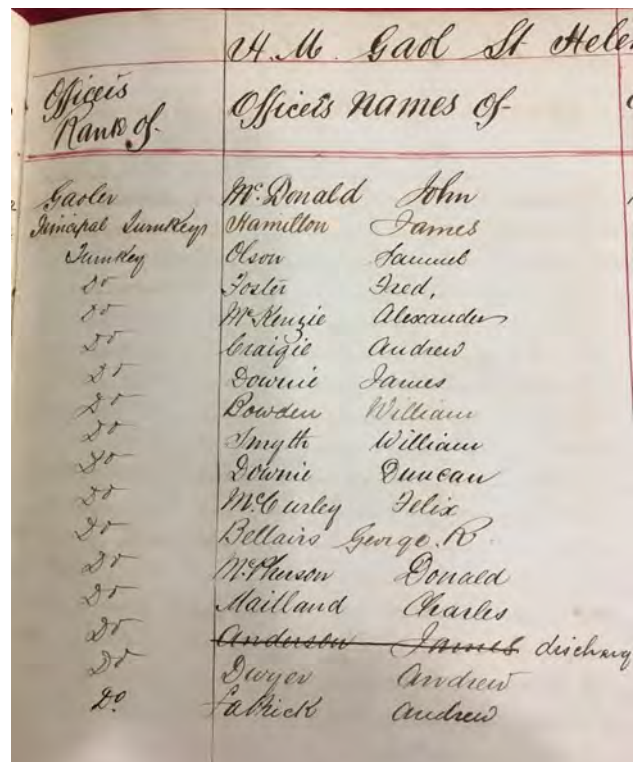 H. M. Gaol St Hele
Officers Rank of-
Officers Names of-
Gaoler Mc Donald John
Principal Turnkeys Hamilton James
Turnkey Olson Samuel
Do Foster Fred,
Do McKenzie Alexander
Do Craigie Andrew
Do Downie James
Do Bowden William
Do Smyth William
Do Downie Duncan
Do McCurley Felix
Do Bellairs George. R.
Do McPherson Donald
Do Maitland Charles
Do Anderson James discharg
Do Dwyer Andrew
Do Andrew